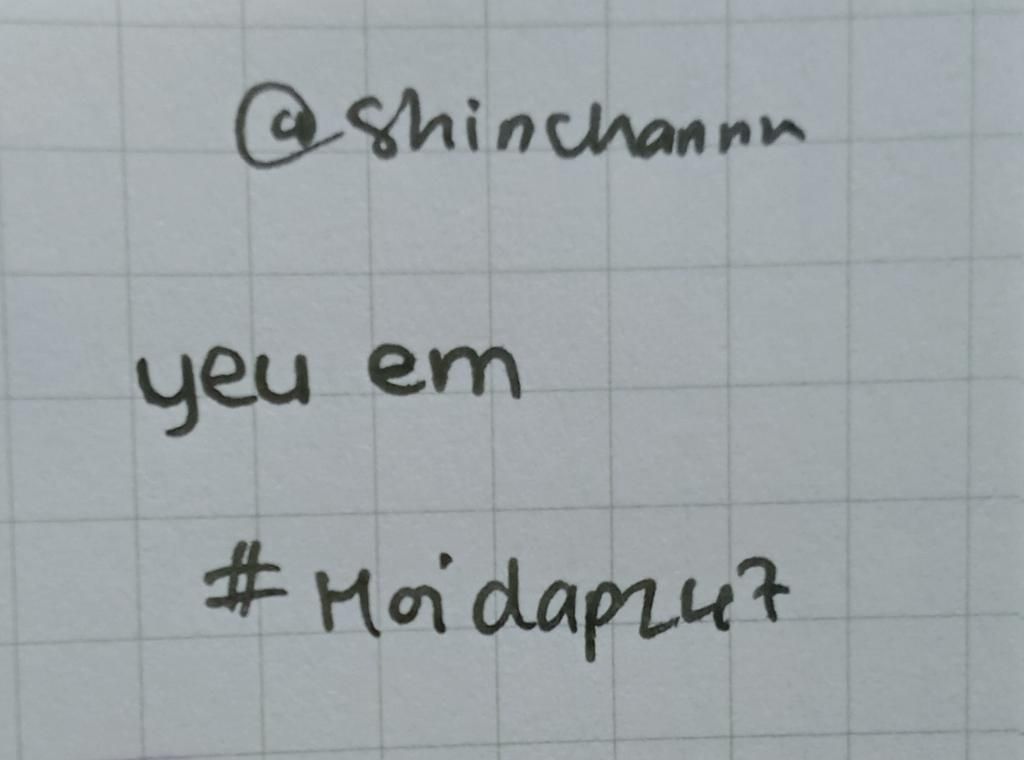 @shinchannn
yeu em
#Hoidap247